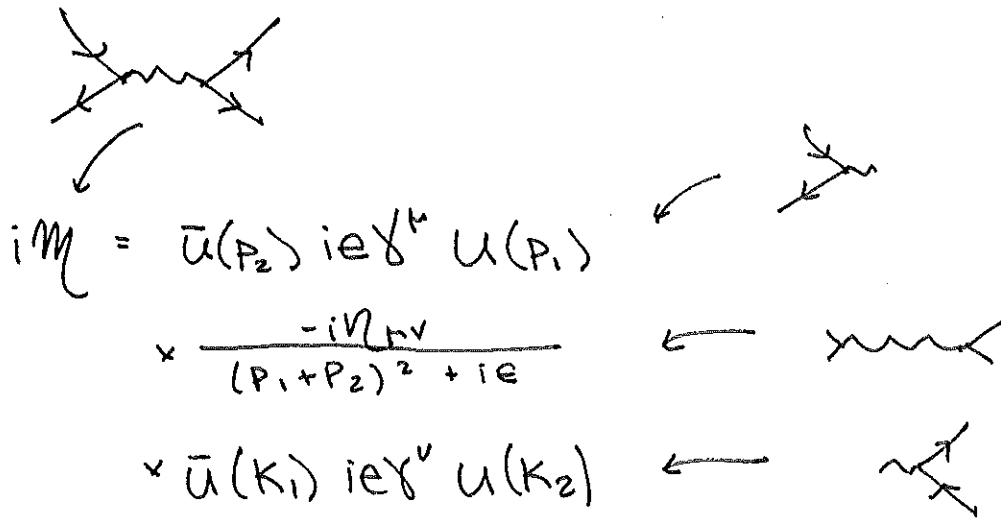 iM = ū(p₂) ieγ^μ u(p₁)
× -iη_μν / ((p₁+p₂)² + iϵ)
× ū(k₁) ieγ^ν u(k₂)